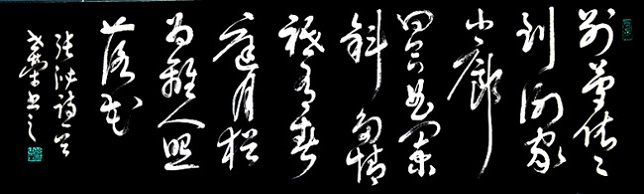 別夢依々
到謝家
小廊
回合曲闌
斜多情
祗有春
庭月猶
為離人照
落花
張泌詩一首
書之